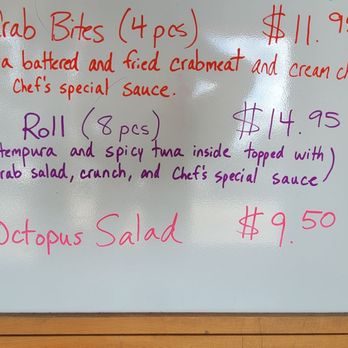 rab Bites (4 pcs) $11.9
a battered and fried crabmeat and cream c
Chef's special sauce.
Roll (8 pcs) $14.95
tempura and spicy tuna inside topped with
rab salad, crunch, and Chef's special sauce)
Octopus Salad $9.50